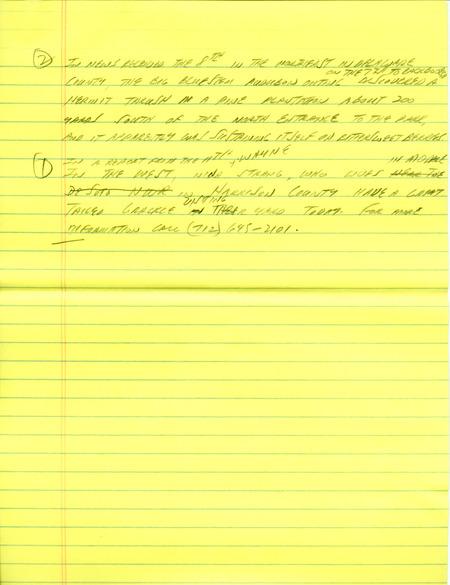 ② IN NEWS RECEIVED THE 8TH IN THE NORTHEAST IN
ON THE 7TH TO BACKBONE
COUNTY, THE BIG BLUESTEM AUDUBON OUTING DISCOVERED A
HERMIT THRUSH IN A PINE PLANTATION ABOUT 200
YARDS SOUTH OF THE NORTH ENTRANCE TO THE PARK,
AND IT APPARENTLY WAS SUSTAINING ITSELF ON BITTERSWEET BERRIES.
① IN A REPORT FROM THE 11TH, WAYNE
IN THE WEST, STRANG, WHO LIVES NEAR THE IN
DESOTO NWR IN HARRISON COUNTY HAVE A GREAT
TAILED GRACKLE VISITING IN THEIR YARD TODAY. FOR MORE
INFORMATION CALL (712) 645-2101.